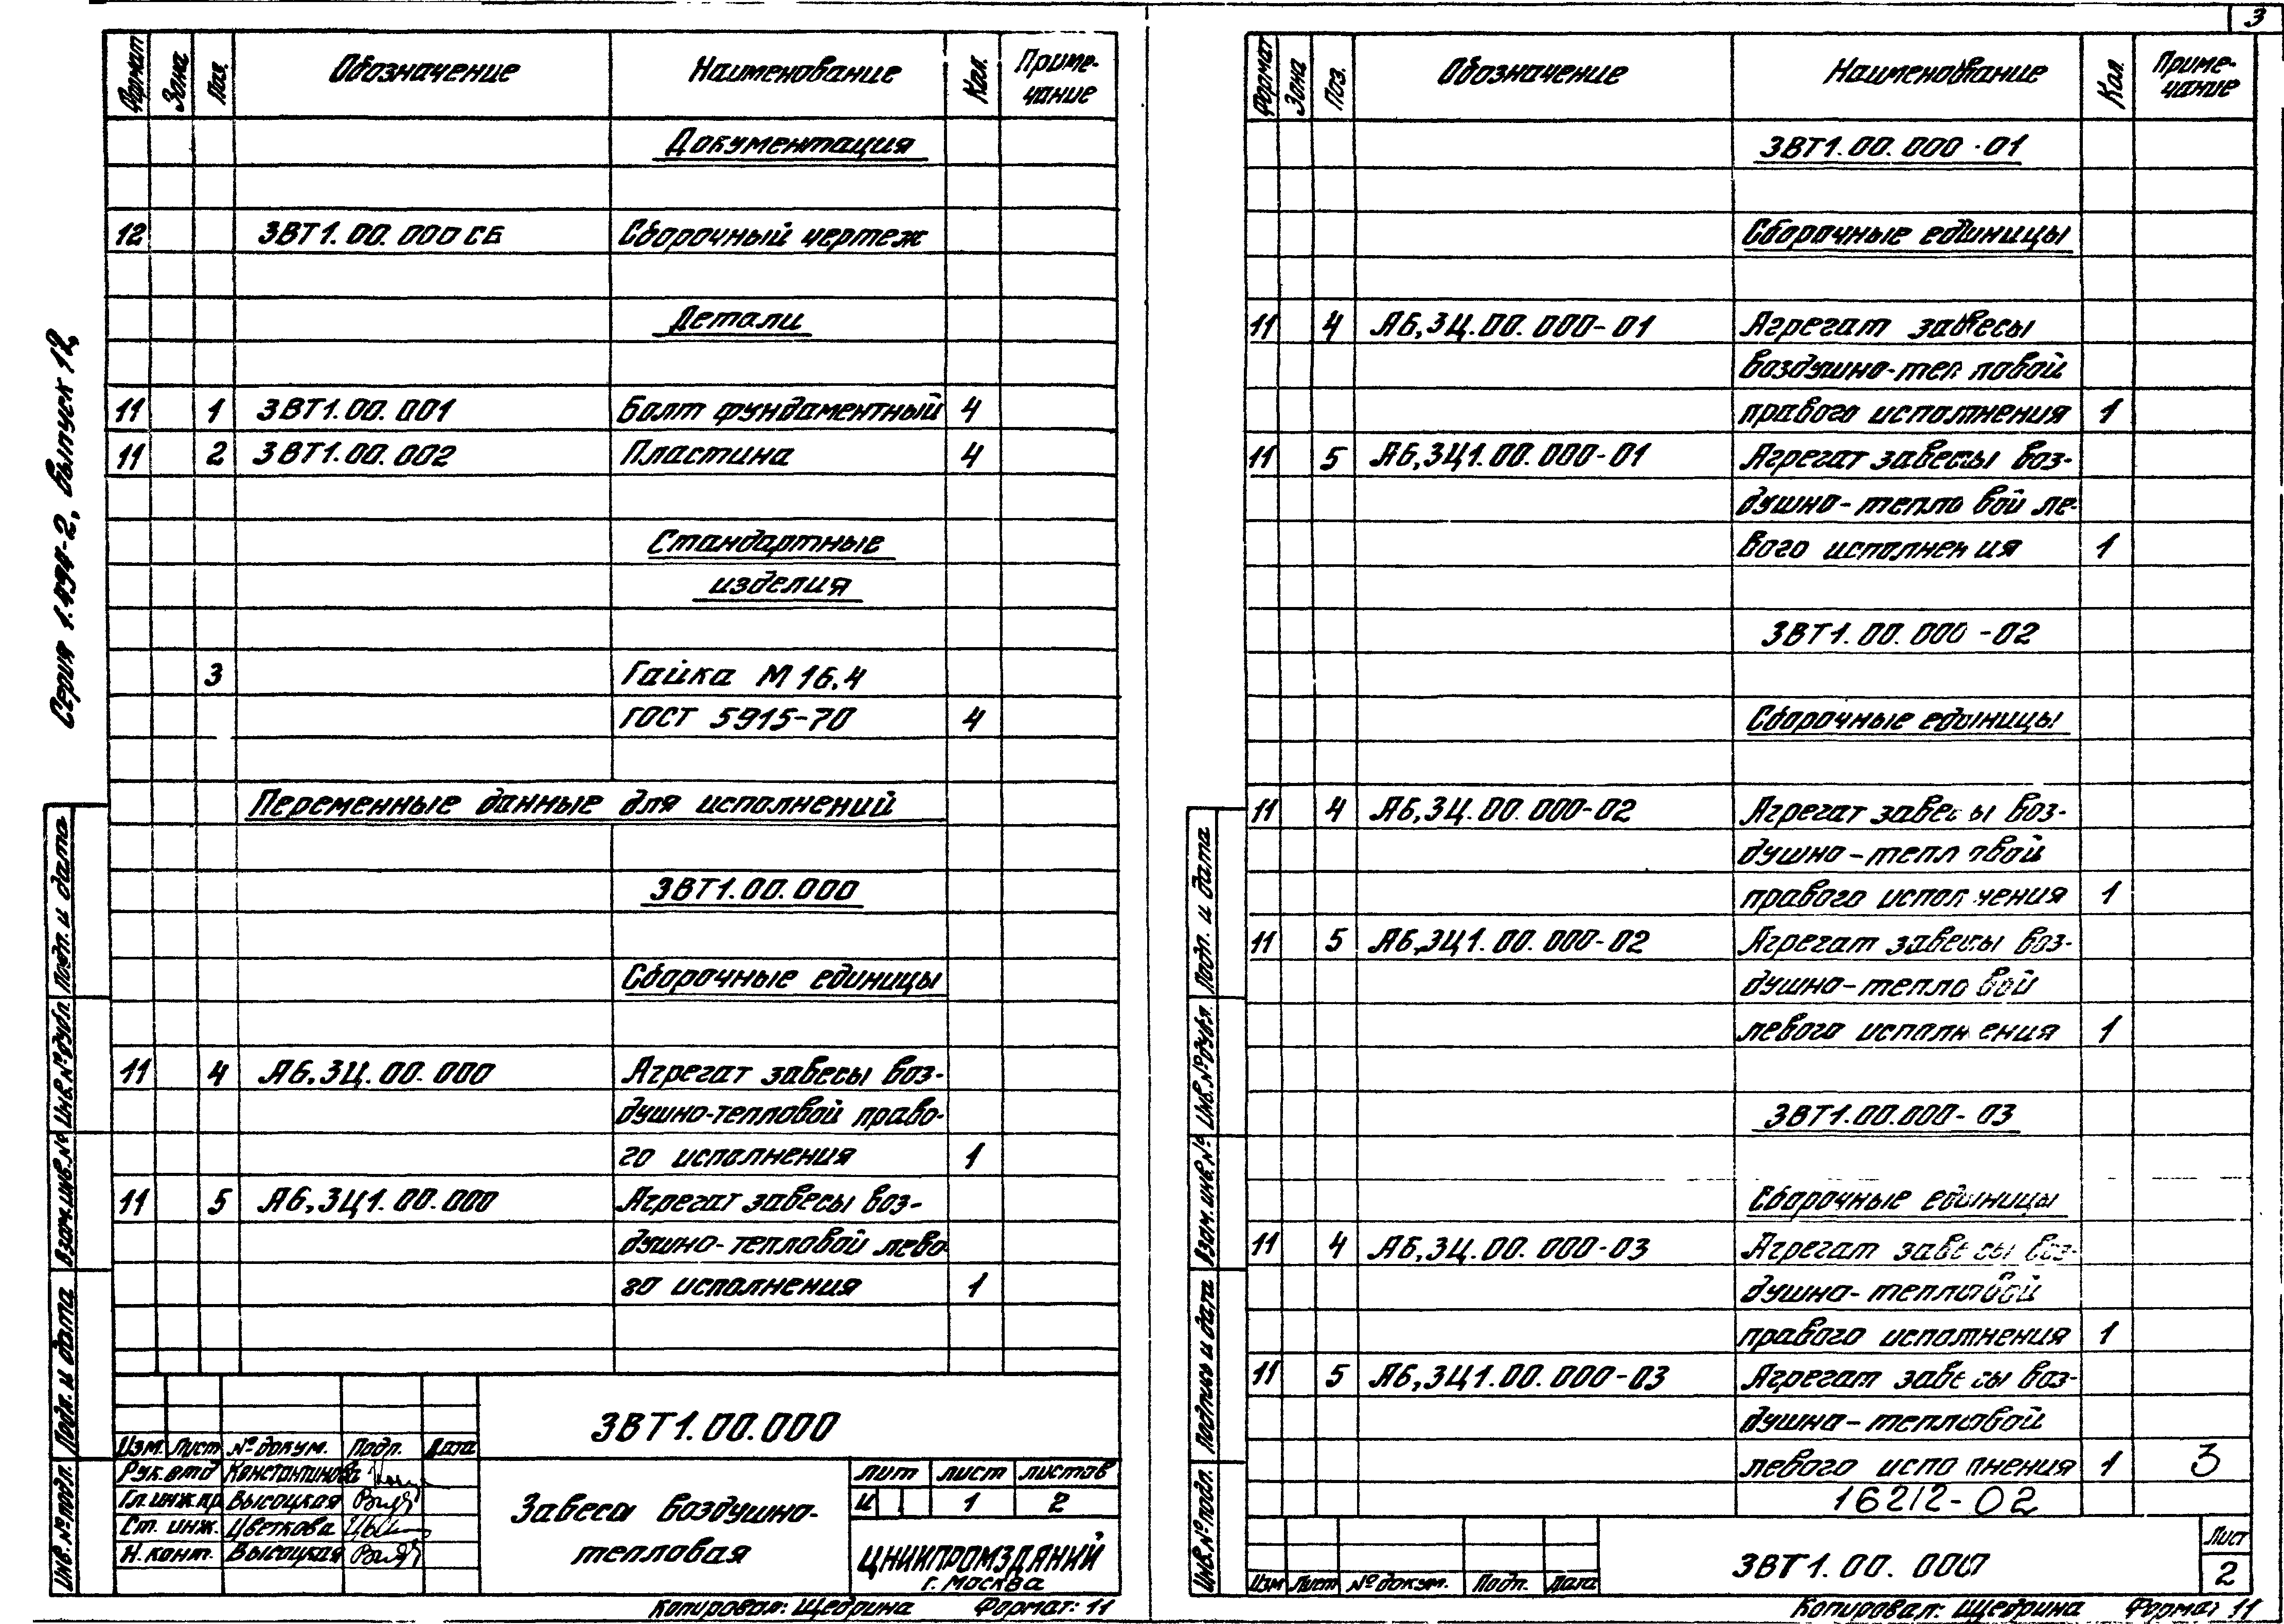 3
Серия 1.494-2, Выпуск 12,
Формат Зона Поз. Обозначение Наименование Кол. Приме-
чание
Документация
12 ЗВТ1.00.000СБ Сборочный чертеж
Детали
11 1 ЗВТ1.00.001 Болт фундаментный 4
11 2 ЗВТ1.00.002 Пластина 4
Стандартные
изделия
3 Гайка М 16.4
ГОСТ 5915-70 4
Переменные данные для исполнений
ЗВТ1.00.000
Сборочные единицы
11 4 А6,3Ц.00.000 Агрегат завесы воз-
душно-тепловой право-
го исполнения 1
11 5 А6,3Ц1.00.000 Агрегат завесы воз-
душно-тепловой лево
го исполнения 1
Подп. и дата
Инв.№ дубл.
Взам.инв.№
Подп. и дата
Инв.№ подл.
ЗВТ1.00.000
Изм. Лист № докум. Подп. Дата
Рук.отд Константинова
Гл.инж.пр. Высоцкая
Ст. инж. Цветкова
Н.конт. Высоцкая
Завеса воздушно-
тепловая
Лит Лист Листов
И 1 2
ЦНИИПРОМЗДАНИЙ
г. Москва
Копировал: Щедрина Формат: 11
Формат Зона Поз. Обозначение Наименование Кол. Приме-
чание
ЗВТ1.00.000-01
Сборочные единицы
11 4 А6,3Ц.00.000-01 Агрегат завесы
воздушно-тепловой
правого исполнения 1
11 5 А6,3Ц1.00.000-01 Агрегат завесы воз-
душно-тепловой ле-
вого исполнения 1
ЗВТ1.00.000-02
Сборочные единицы
11 4 А6,3Ц.00.000-02 Агрегат завесы воз-
душно-тепловой
правого исполнения 1
11 5 А6,3Ц1.00.000-02 Агрегат завесы воз-
душно-тепловой
левого исполнения 1
ЗВТ1.00.000-03
Сборочные единицы
11 4 А6,3Ц.00.000-03 Агрегат завесы воз-
душно-тепловой
правого исполнения 1
11 5 А6,3Ц1.00.000-03 Агрегат завесы воз-
душно-тепловой
левого исполнения 1 3
16212-02
Подп. и дата
Инв.№ дубл.
Взам.инв.№
Подпись и дата
Инв.№ подл.
Изм Лист № докум. Подп. Дата
ЗВТ1.00.000
Лист
2
Копировал: Щедрина Формат 11